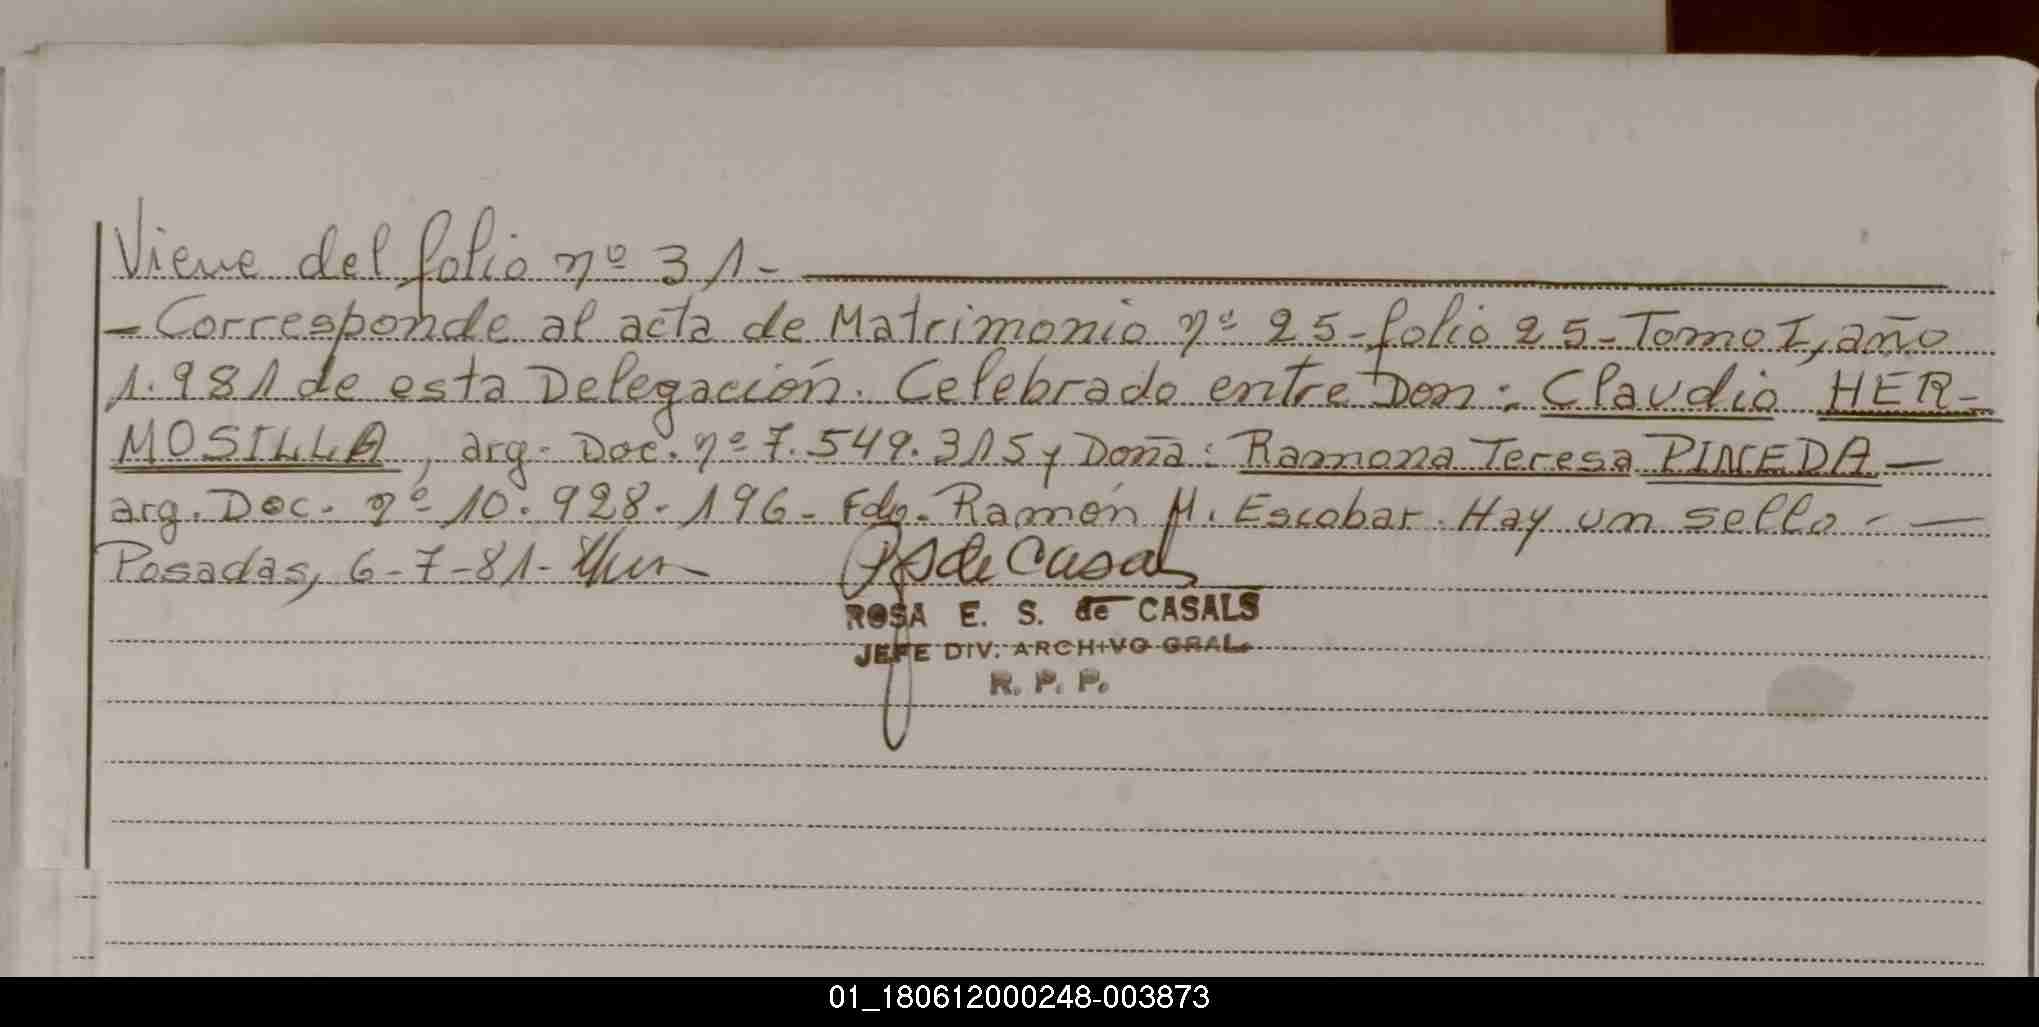 Viene del folio nº 31-
- Corresponde al acta de Matrimonio nº 25-folio 25-Tomo I, año
1.981 de esta Delegación. Celebrado entre Don: Claudio HER-
MOSILLA, arg. Doc. nº 7.549.315 y Doña: Ramona Teresa PINEDA -
arg. Doc. nº 10.928.196- Fdo. Ramón M. Escobar. Hay un sello.-
Posadas, 6-7-81-
RS de Casals
ROSA E. S. de CASALS
JEFE DIV. ARCHIVO GRAL.
R. P. P.
01_180612000248-003873